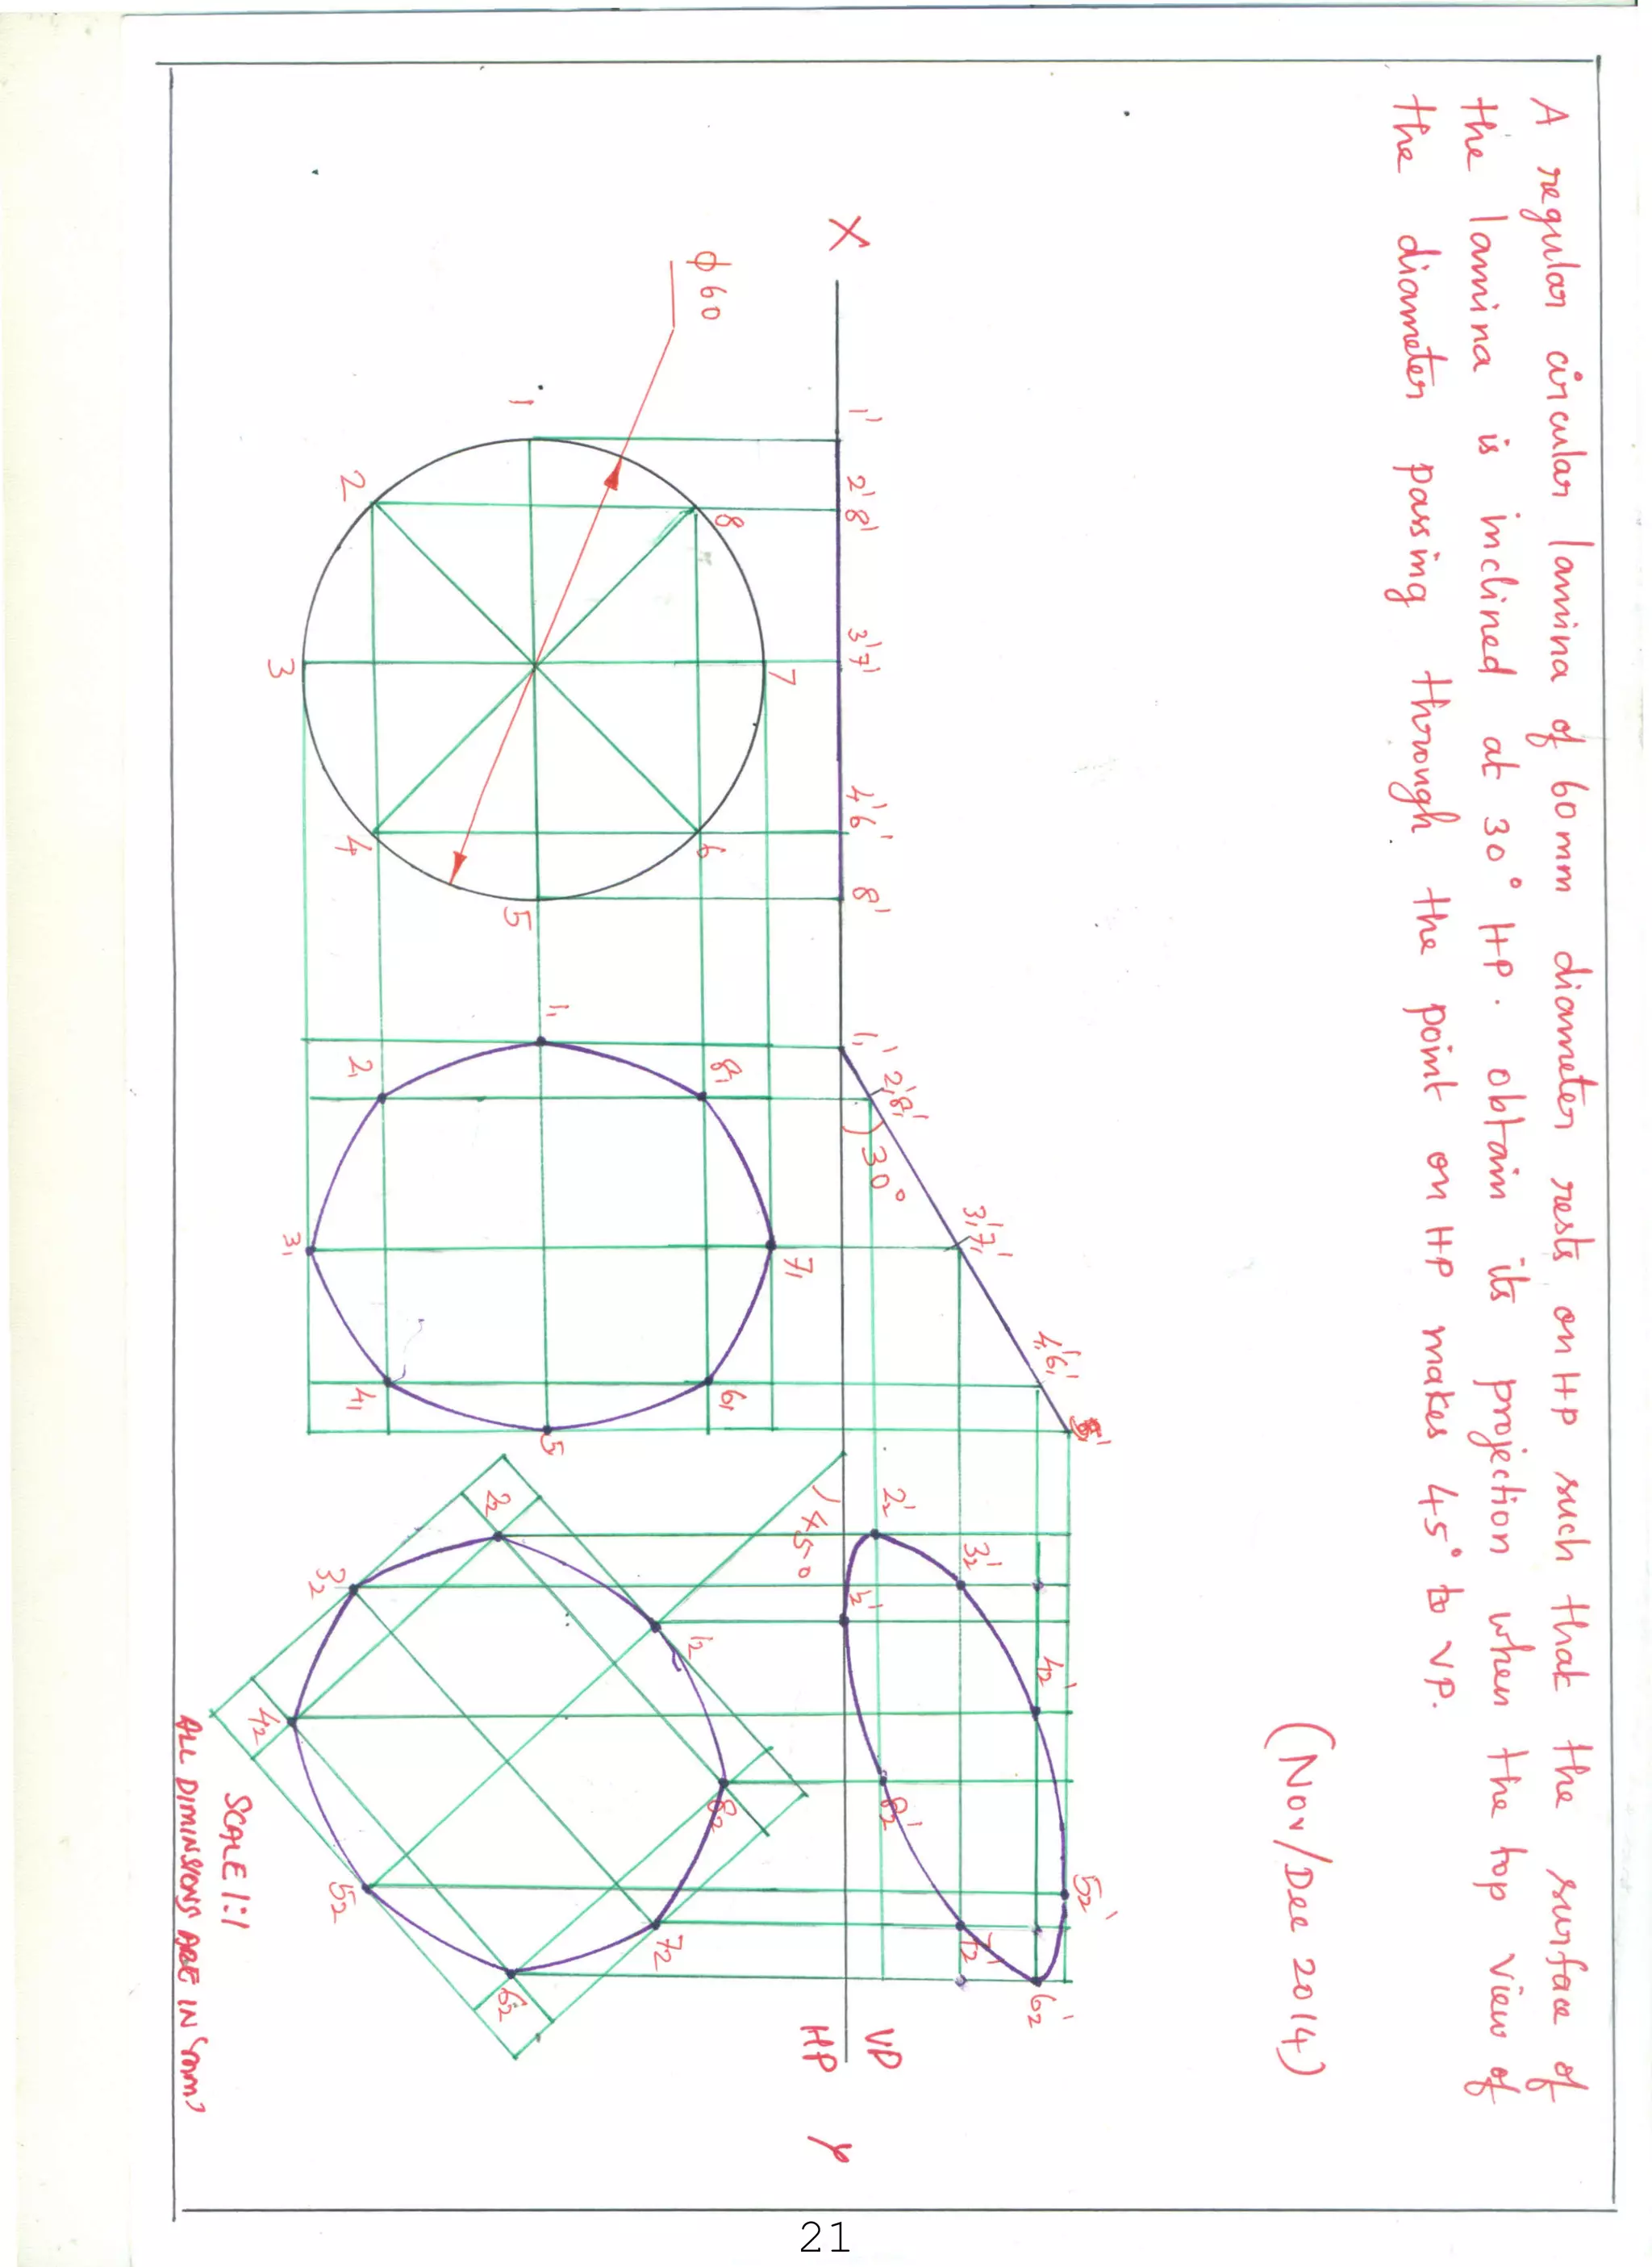 A regular circular lamina of 60mm diameter rests on HP such that the surface of
the lamina is inclined at 30° HP. obtain its projection when the top view of
the diameter passing through the point on HP makes 45° to VP.
(Nov/Dec 2014)
X
1' 2'8' 3'7' 4'6' 8'
1₁' 2₁'8₁' 3₁'7₁' 4₁'6₁'
30°
1₂' 2₂' 3₂' 4₂' 5₂' 6₂' 7₂' 8₂'
VP
HP
Y
φ60
1 2 3 4 5 6 7 8
1₁ 2₁ 3₁ 4₁ 5 6₁ 7₁ 8₁
45°
1₂ 2₂ 3₂ 4₂ 5₂ 6₂ 7₂ 8₂
SCALE 1:1
ALL DIMINSIONS ARE IN 'mm'
21